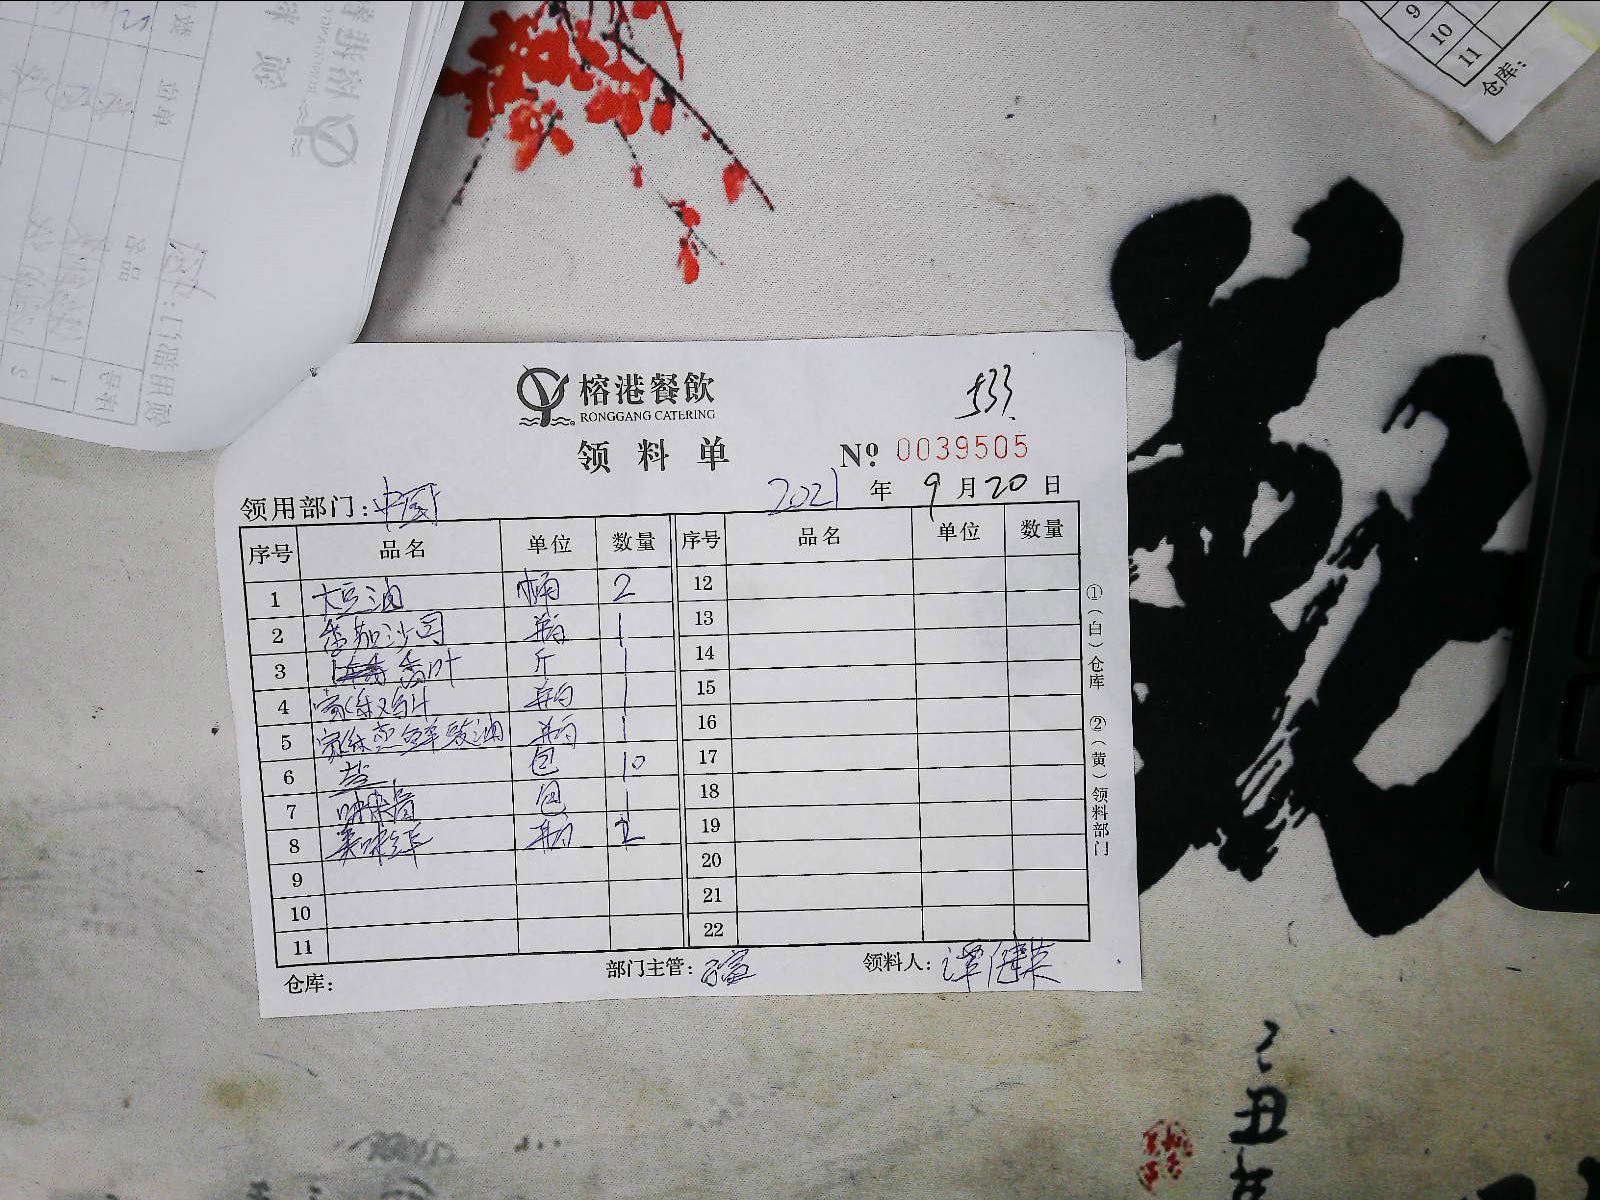 榕港餐飲
RONGGANG CATERING
533
领料单
Nº 0039505
领用部门: 中厨
2021 年 9 月 20 日
序号 品名 单位 数量 序号 品名 单位 数量
1 大豆油 桶 2 12
2 番茄沙司 瓶 1 13
3 香叶 斤 1 14
4 家乐鸡汁 瓶 1 15
5 家乐蒸鲜豉油 瓶 1 16
6 盐 包 10 17
7 味 包 1 18
8 美味鲜 瓶 2 19
9 20
10 21
11 22
仓库: 部门主管: 领料人: 谭健荣
①(白)仓库 ②(黄)领料部门
9
10
11
仓库:
己丑